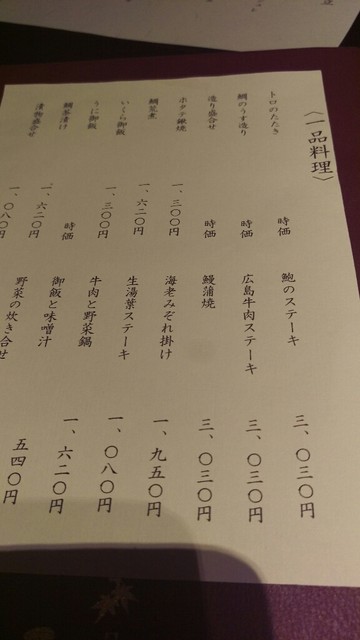 〈一品料理〉
トロのたたき 時価
鯛のうす造り 時価
造り盛合せ 時価
ホタテ 一、三〇〇円
鯛兜煮 一、六二〇円
いくら御飯 一、三〇〇円
うに御飯 時価
鯛茶漬け 一、六二〇円
漬物盛合せ 一、〇八〇円
鮑のステーキ 三、〇三〇円
広島牛肉ステーキ 三、〇三〇円
鰻蒲焼 三、〇三〇円
海老みぞれ掛け 一、九五〇円
生湯葉ステーキ 一、〇八〇円
牛肉と野菜鍋 一、六二〇円
御飯と味噌汁 五四〇円
野菜の炊き合せ